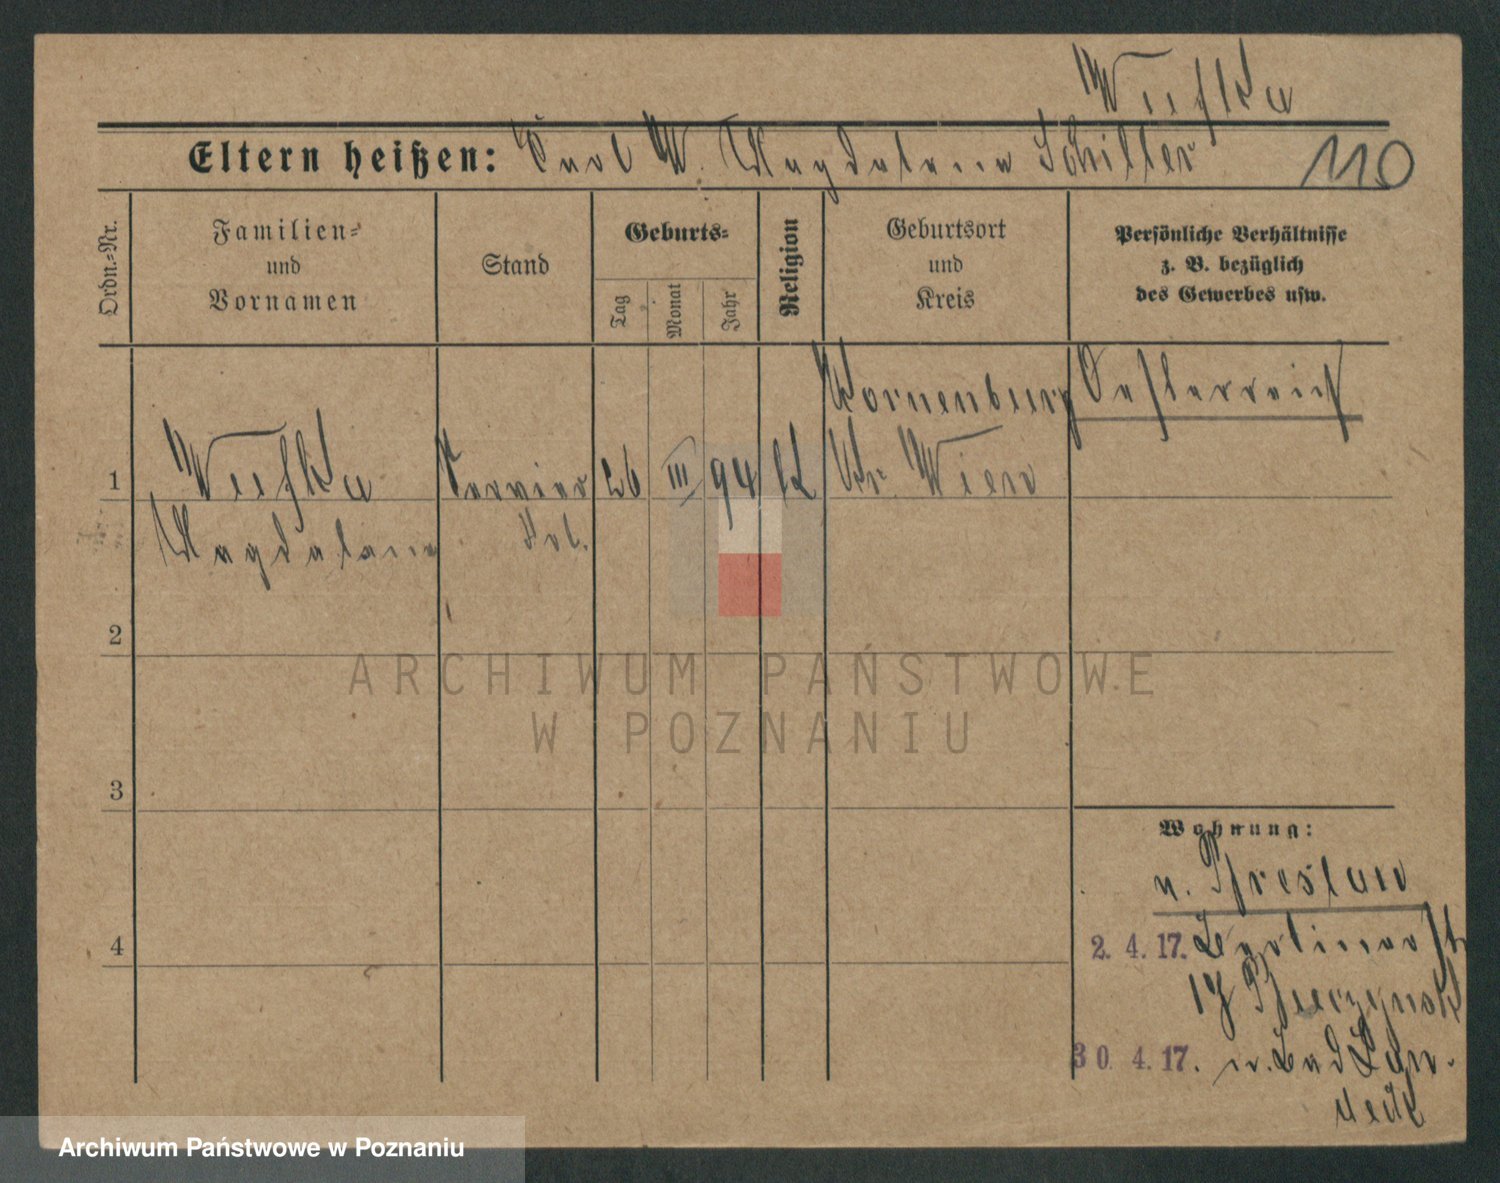 Wuchka
Eltern heißen: Carl W. Magdalena Schiller
110
Ordn.-Nr.
Familien-
und
Vornamen
Stand
Geburts-
Tag
Monat
Jahr
Religion
Geburtsort
und
Kreis
Persönliche Verhältnisse
z. B. bezüglich
des Gewerbes usw.
1
26 III 94 K
Kornenburg
Kr. Wien
Oesterreich
Magdalena
2
3
4
ARCHIWUM PAŃSTWOWE
W POZNANIU
Wohnung:
n. Breslau
2. 4. 17. Berliner St
17
30. 4. 17. n. Bad Lan-
deck
Archiwum Państwowe w Poznaniu